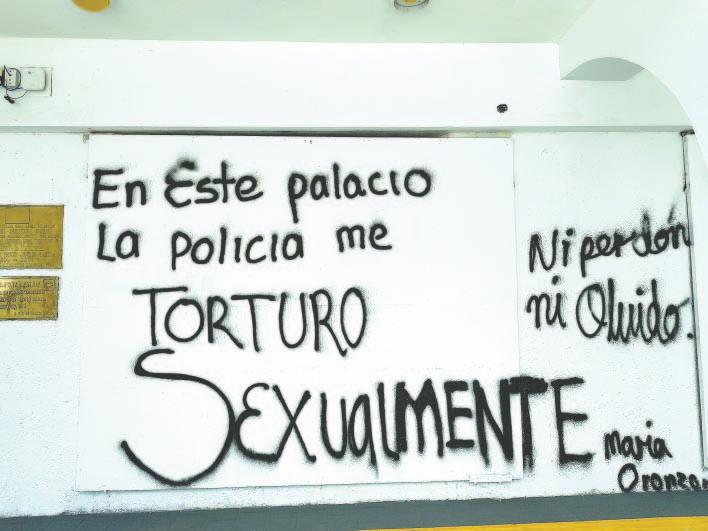 En Este palacio
La policia me
TORTURO
SEXUALMENTE
Ni perdón
ni Olvido.
Maria